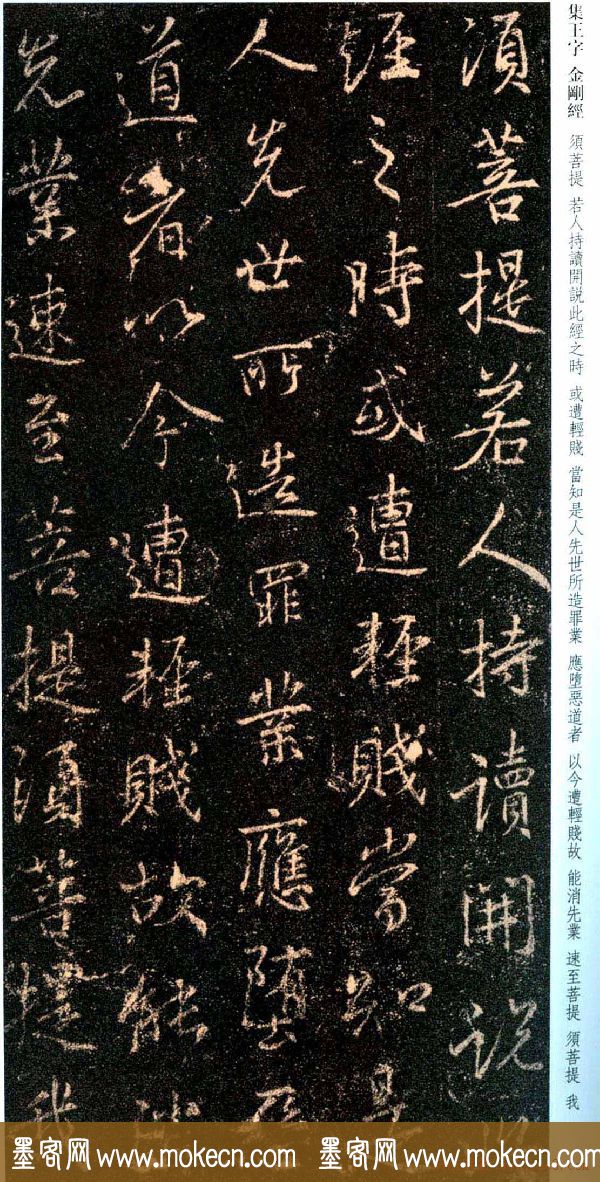 集王字 金剛經 須菩提 若人持讀開説此經之時 或遭輕賤 當知是人先世所造罪業 應墮惡道者 以今遭輕賤故 能消先業 速至菩提 須菩提 我
須菩提若人持讀開説此
經之時或遭輕賤當知是
人先世所造罪業應墮惡
道者以今遭輕賤故能消
先業速至菩提須菩提我
墨客网 www.mokecn.com 墨客网 www.mokecn.com